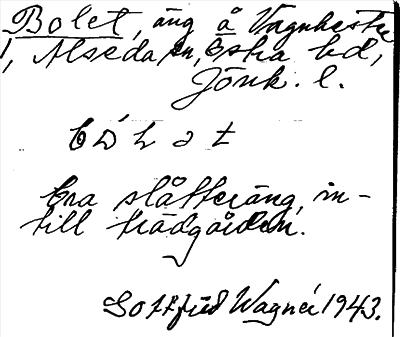 Bolet, äng å Vagnhester
, Alseda sn, Östra hd,
Jönk. l.
bòlət
Bra slåtteräng, in-
till trädgården.
Gottfrid Wagnér 1943.